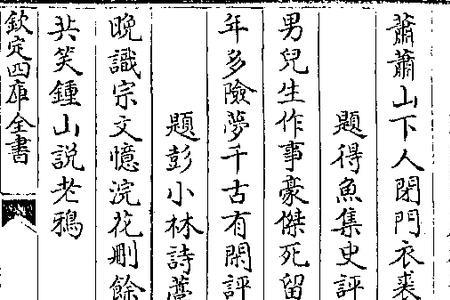 蕭蕭山下人閉門衣裘
題得魚集史評
男兒生作事豪傑死留
年多險夢千古有閑評
題彭小林詩藁
晚識宗文憶浣花刪餘
共笑鍾山説老鴉
欽定四庫全書